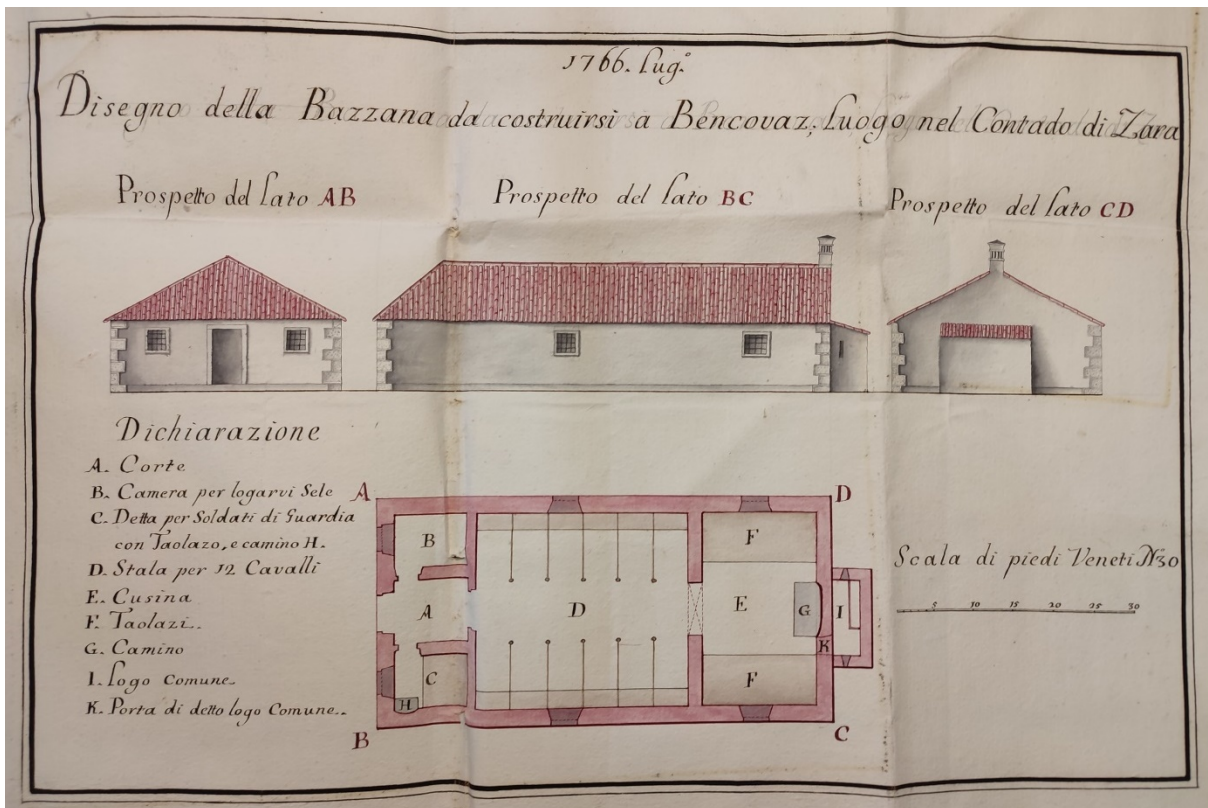 1766. Lug.º
Disegno della Bazzana da costruirsi a Bencovaz; Luogo nel Contado di Zara
Prospetto del Lato AB
Prospetto del Lato BC
Prospetto del Lato CD
Dichiarazione
A. Corte
B. Camera per logarvi Sele
C. Detta per Soldati di Guardia
con Taolazo, e camino H.
D. Stala per 12 Cavalli
E. Cusina
F. Taolazi.
G. Camino
I. Logo Comune.
K. Porta di detto logo Comune.
A
D
B
F
A
D
E
G
I
K
C
F
H
B
C
Scala di piedi Veneti N.º 30
5 10 15 20 25 30